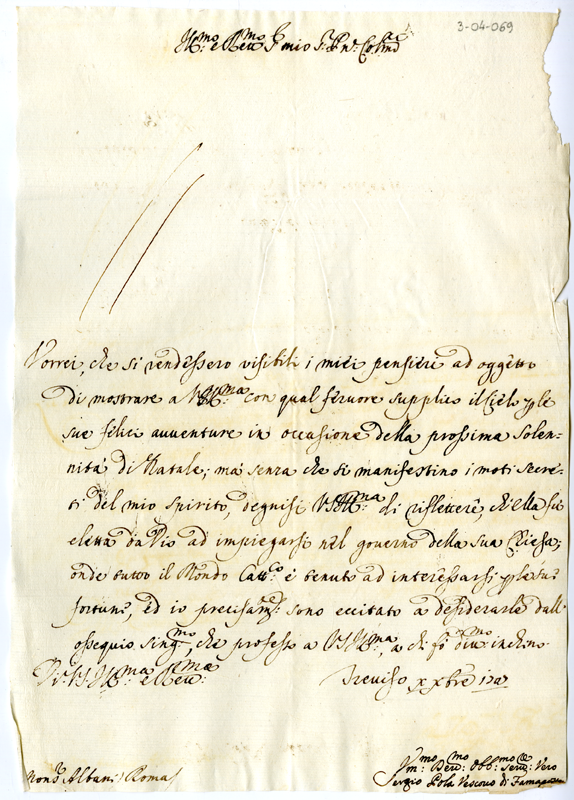 3-04-069
Ill:mo e Reu:mo S:r mio S:r Pn'e Col:mo
Vorrei, che si rendessero visibili i miei pensieri ad oggetto
di mostrare a VS Ill:ma con qual feruore supplico il Ciel ple
sue felici auuenture in occasione della prossima Solen-
nità di Natale; ma senza che si manifestino i moti secre-
ti del mio spirito, degnisi VS Ill:ma di riflettere, ch'ella fu
eletta da Dio ad impiegarsi nel gouerno della sua Chiesa;
onde tutto il Mondo Catt:co è tenuto ad interessarsi p le sue
fortune, ed io precisam:te sono eccitato a desiderarle dall'
ossequio sing:mo, che professo a VS Ill:ma, a chi fò diu:mo inchino
Di VS Ill:ma e Reu:ma
Treviso x xbre
Mons:r Albani Roma
Vm:mo Deu:mo Obb:mo Seru: Vero
Sergio Pola Vescouo di Famag